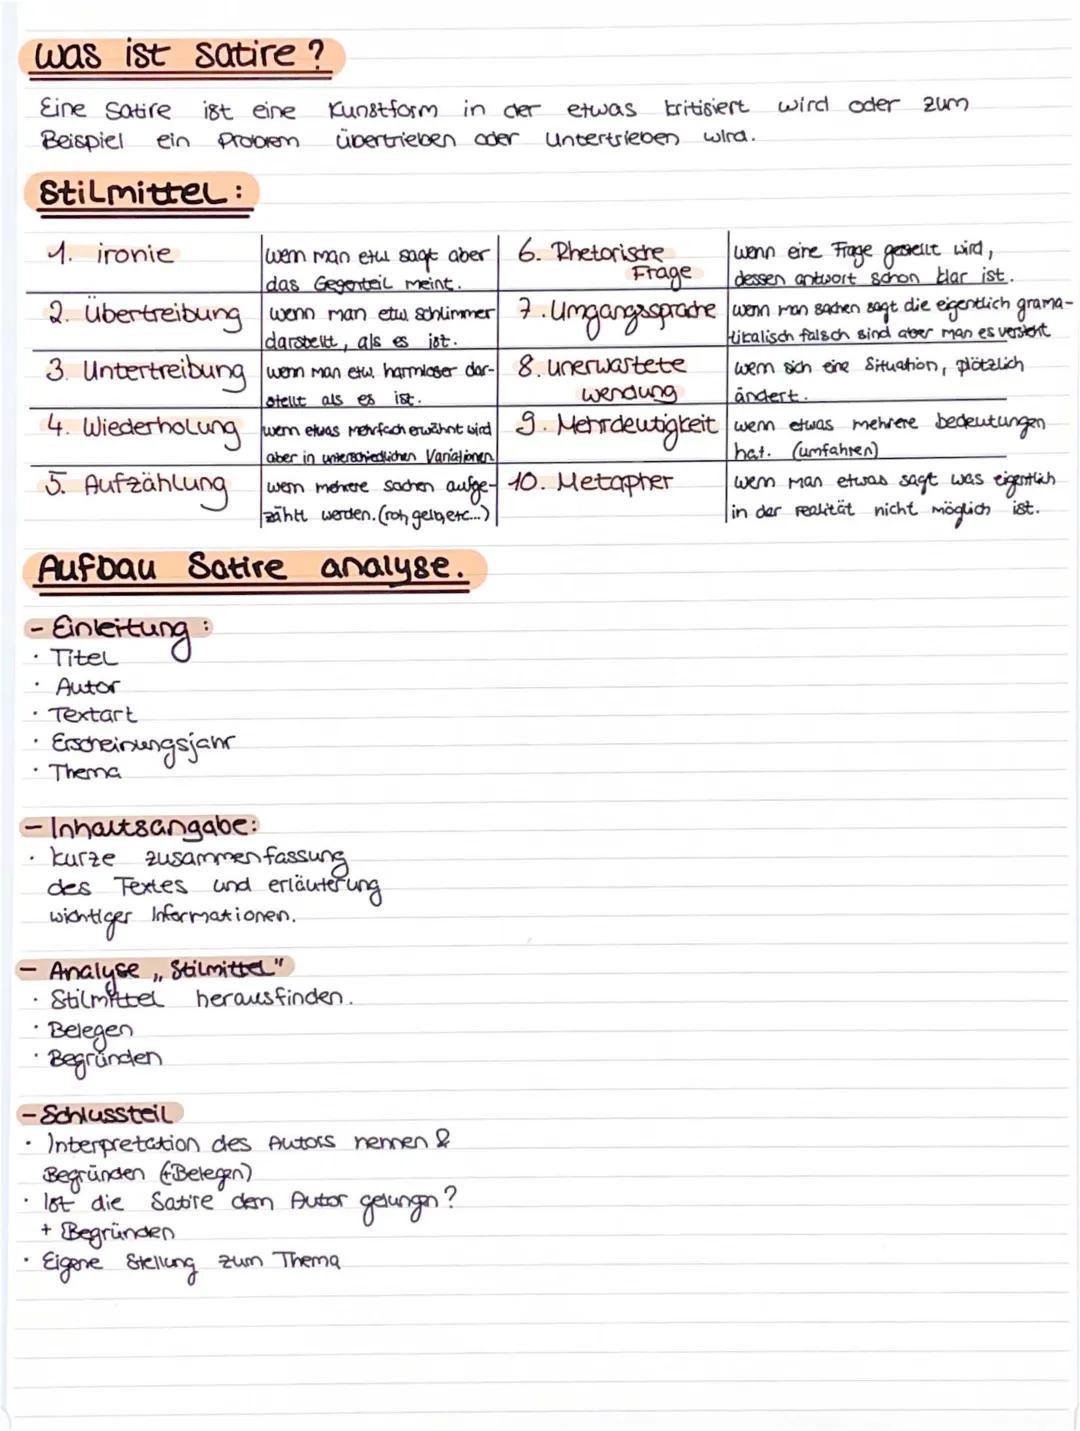 Was ist Satire?
Eine Satire ist eine Kunstform in der etwas kritisiert wird oder zum
Beispiel ein Problem übertrieben oder Untertrieben wird.
Stilmittel:
1. ironie
wenn man etw sagt aber
das Gegenteil meint.
2. Übertreibung
wenn man etw schlimmer
darstellt, als es ist.
3. Untertreibung
wenn man etw. harmloser dar-
stellt als es ist.
4. Wiederholung
wenn etwas mehrfach erwähnt wird
aber in unterschiedlichen Variationen
5. Aufzählung
wenn mehrere sachen aufge-
zählt werden. (rot, gelb, etc...)
6. Rhetorische
Frage
wenn eine Frage gestellt wird,
dessen antwort schon klar ist.
7. Umgangssprache
wenn man sachen sagt die eigentlich grama-
tikalisch falsch sind aber man es versteht
8. unerwartete
wendung
wenn sich eine Situation, plötzlich
ändert.
9. Mehrdeutigkeit
wenn etwas mehrere bedeutungen
hat. (umfahren)
10. Metapher
wenn man etwas sagt was eigentlich
in der realität nicht möglich ist.
Aufbau Satire analyse.
- Einleitung:
· Titel
· Autor
· Textart
· Erscheinungsjahr
· Thema
- Inhaltsangabe:
· kurze zusammenfassung
des Textes und erläuterung
wichtiger Informationen.
- Analyse „Stilmittel"
· Stilmittel herausfinden.
· Belegen
· Begründen
- Schlussteil
· Interpretation des Autors nennen &
Begründen (+Belegen)
· Ist die Satire dem Autor gelungen?
+ Begründen
· Eigene Stellung zum Thema